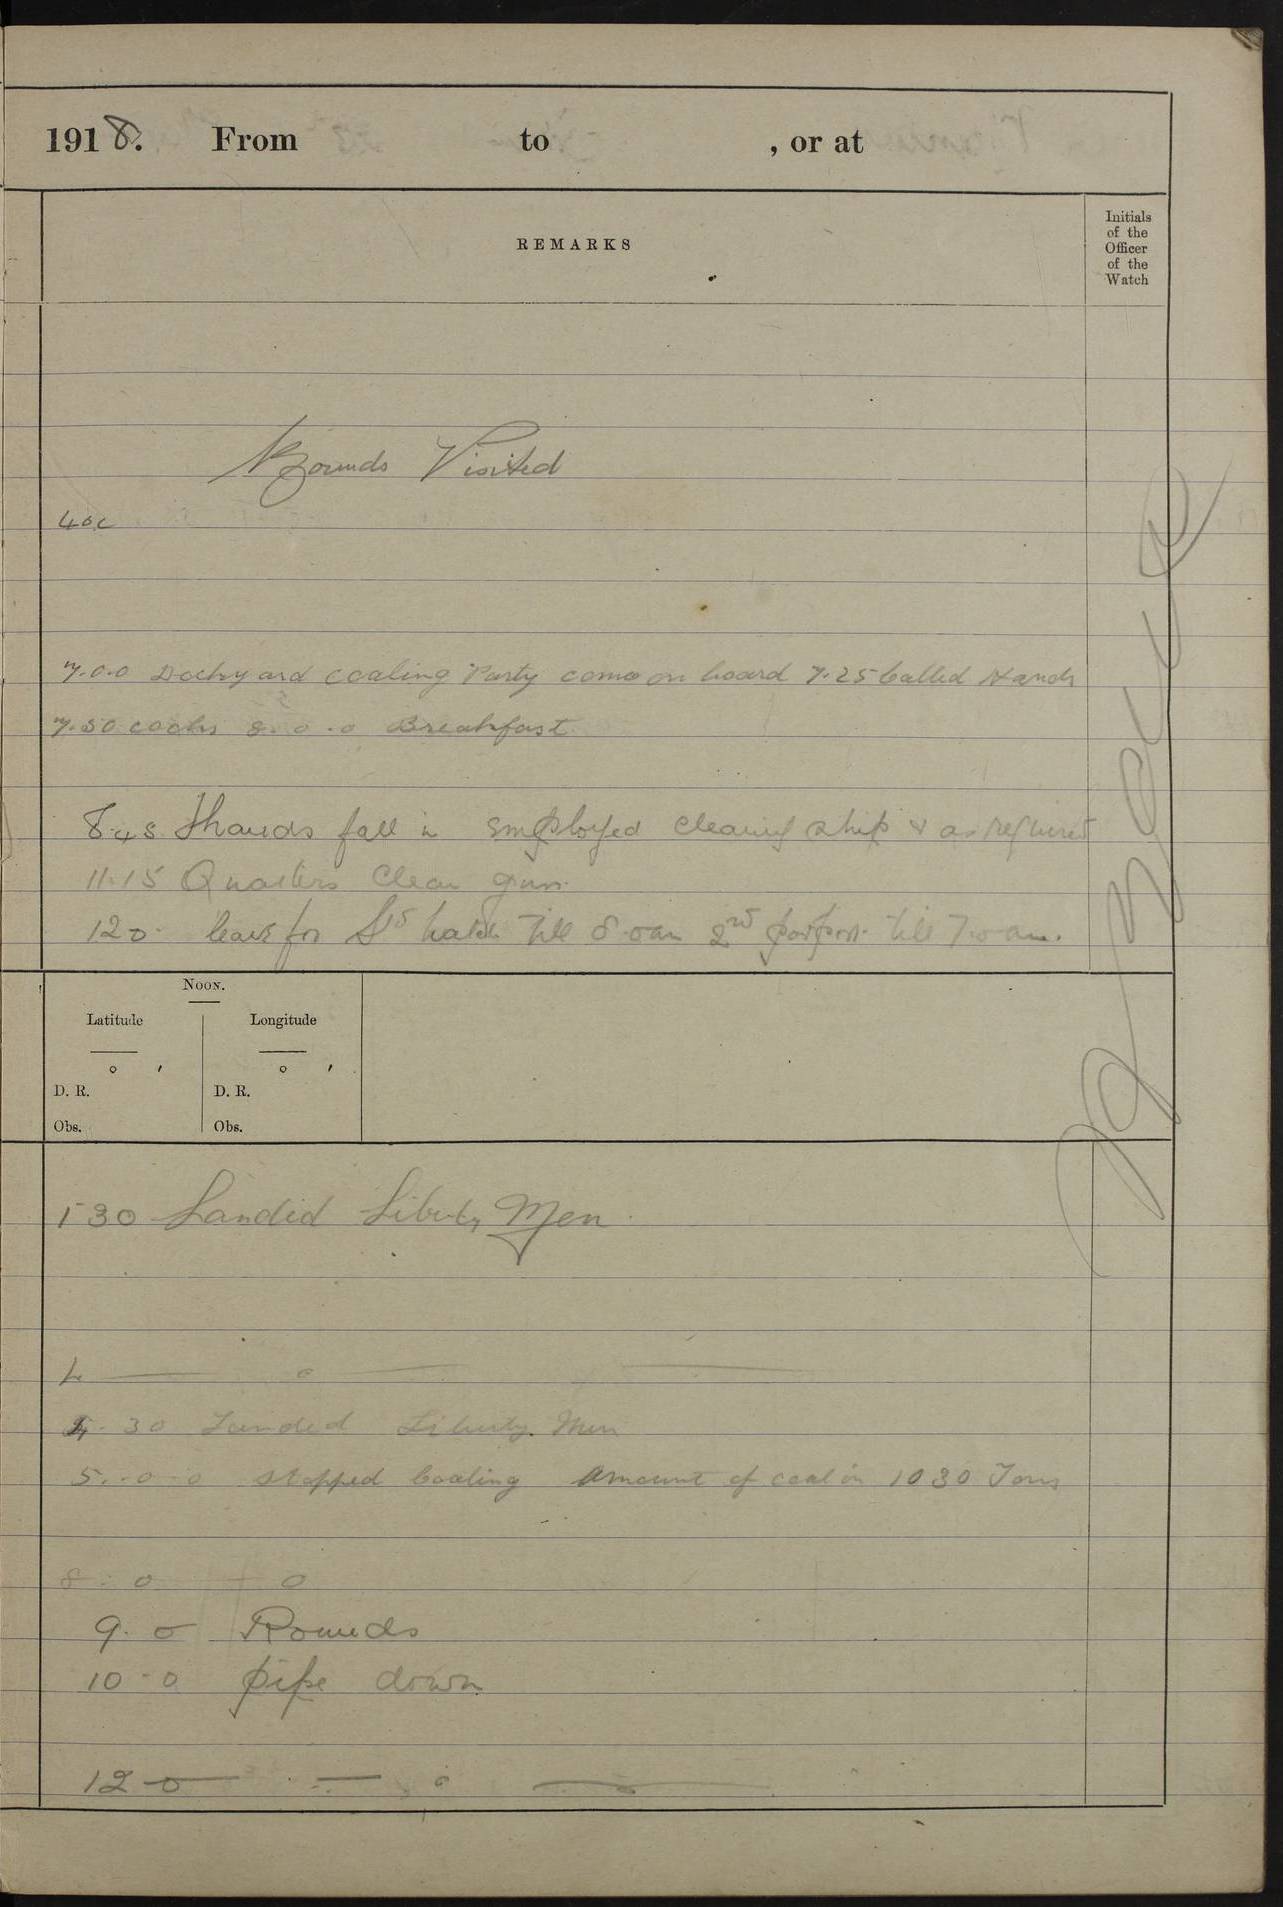 1918. From to , or at
REMARKS
Initials
of the
Officer
of the
Watch
Rounds Visited
7.0.0 Dockyard coaling Party come on board 7.25 Called Hands
7.50 cooks 8.0.0 Breakfast
8.45 Hands fall in employed cleaning ship & as required
11.15 Quarters Clean guns.
12 0. leave for 1st watch till 8.0 am 2nd part port till 7.0 am.
NOON.
Latitude Longitude
° ′ ° ′
D. R. D. R.
Obs. Obs.
1 30 Landed Liberty Men
4
4.30 Landed Liberty Men
5.0.0 stopped Coaling Amount of coal in 1030 Tons
8.0
9.0 Rounds
10.0 pipe down
12 0